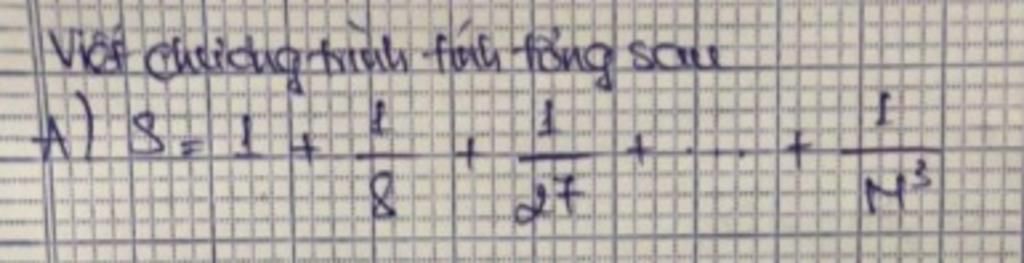 Viết chương trình tính tổng sau
A) S = 1 + 1/8 + 1/27 + .... + 1/N³